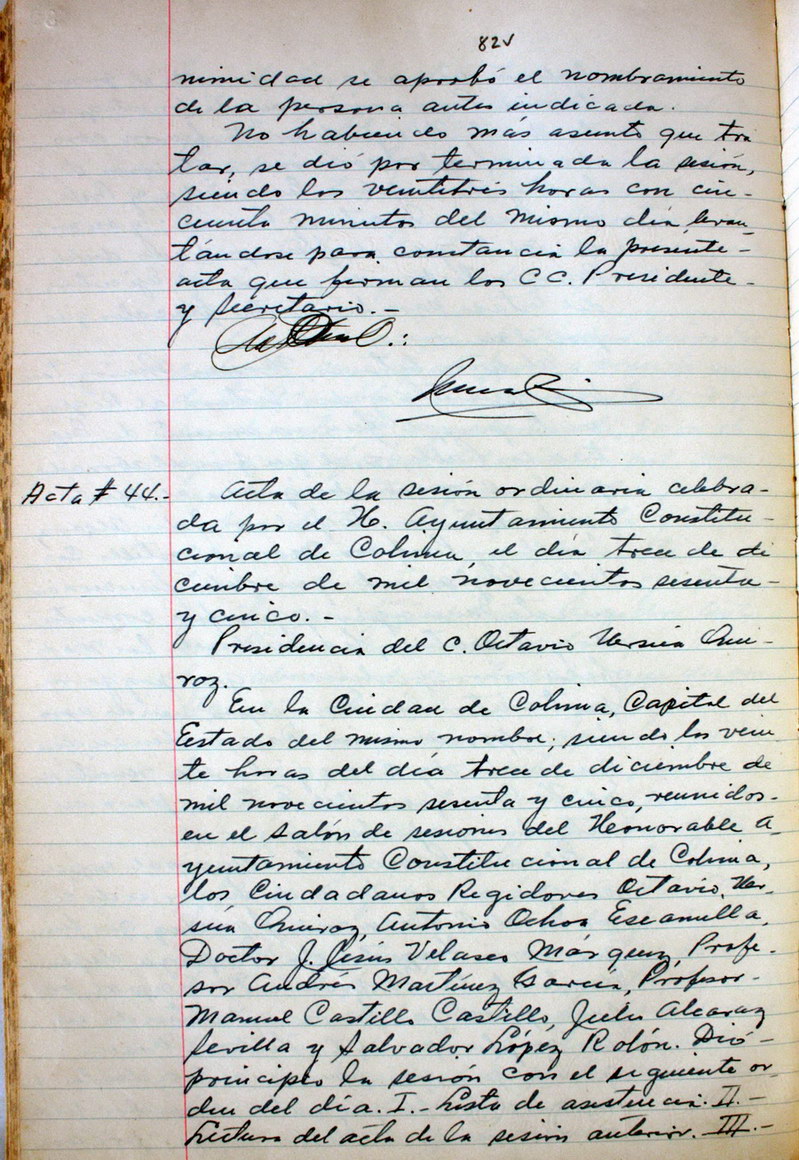 82v
nimidad se aprobó el nombramiento
de la persona antes indicada.
No habiendo más asunto que tra
tar, se dió por terminada la sesión,
siendo las veintitrés horas con cin-
cuenta minutos del mismo día, levan
tándose para constancia la presente-
acta que firman los CC. Presidente-
y Secretario.-
Acta # 44.-
Acta de la sesión ordinaria celebra-
da por el H. Ayuntamiento Constitu-
cional de Colima, el día trece de di
ciembre de mil novecientos sesenta-
y cinco.-
Presidencia del C. Octavio Ursúa Qui-
roz.
En la Ciudad de Colima, Capital del
Estado del mismo nombre, siendo las vein
te horas del día trece de diciembre de
mil novecientos sesenta y cinco, reunidos-
en el salón de sesiones del Honorable A-
yuntamiento Constitucional de Colima,
los Ciudadanos Regidores Octavio Ur-
súa Quiroz, Antonio Ochoa Escamilla,
Doctor J. Jesús Velasco Márquez, Profe-
sor Andrés Martínez García, Profesor-
Manuel Castillo Castillo, Julio Alcaraz
Sevilla y Salvador López Rolón. Dió-
principio la sesión con el siguiente or-
den del día. I.- Lista de asistencia. II.-
Lectura del acta de la sesión anterior. III.-